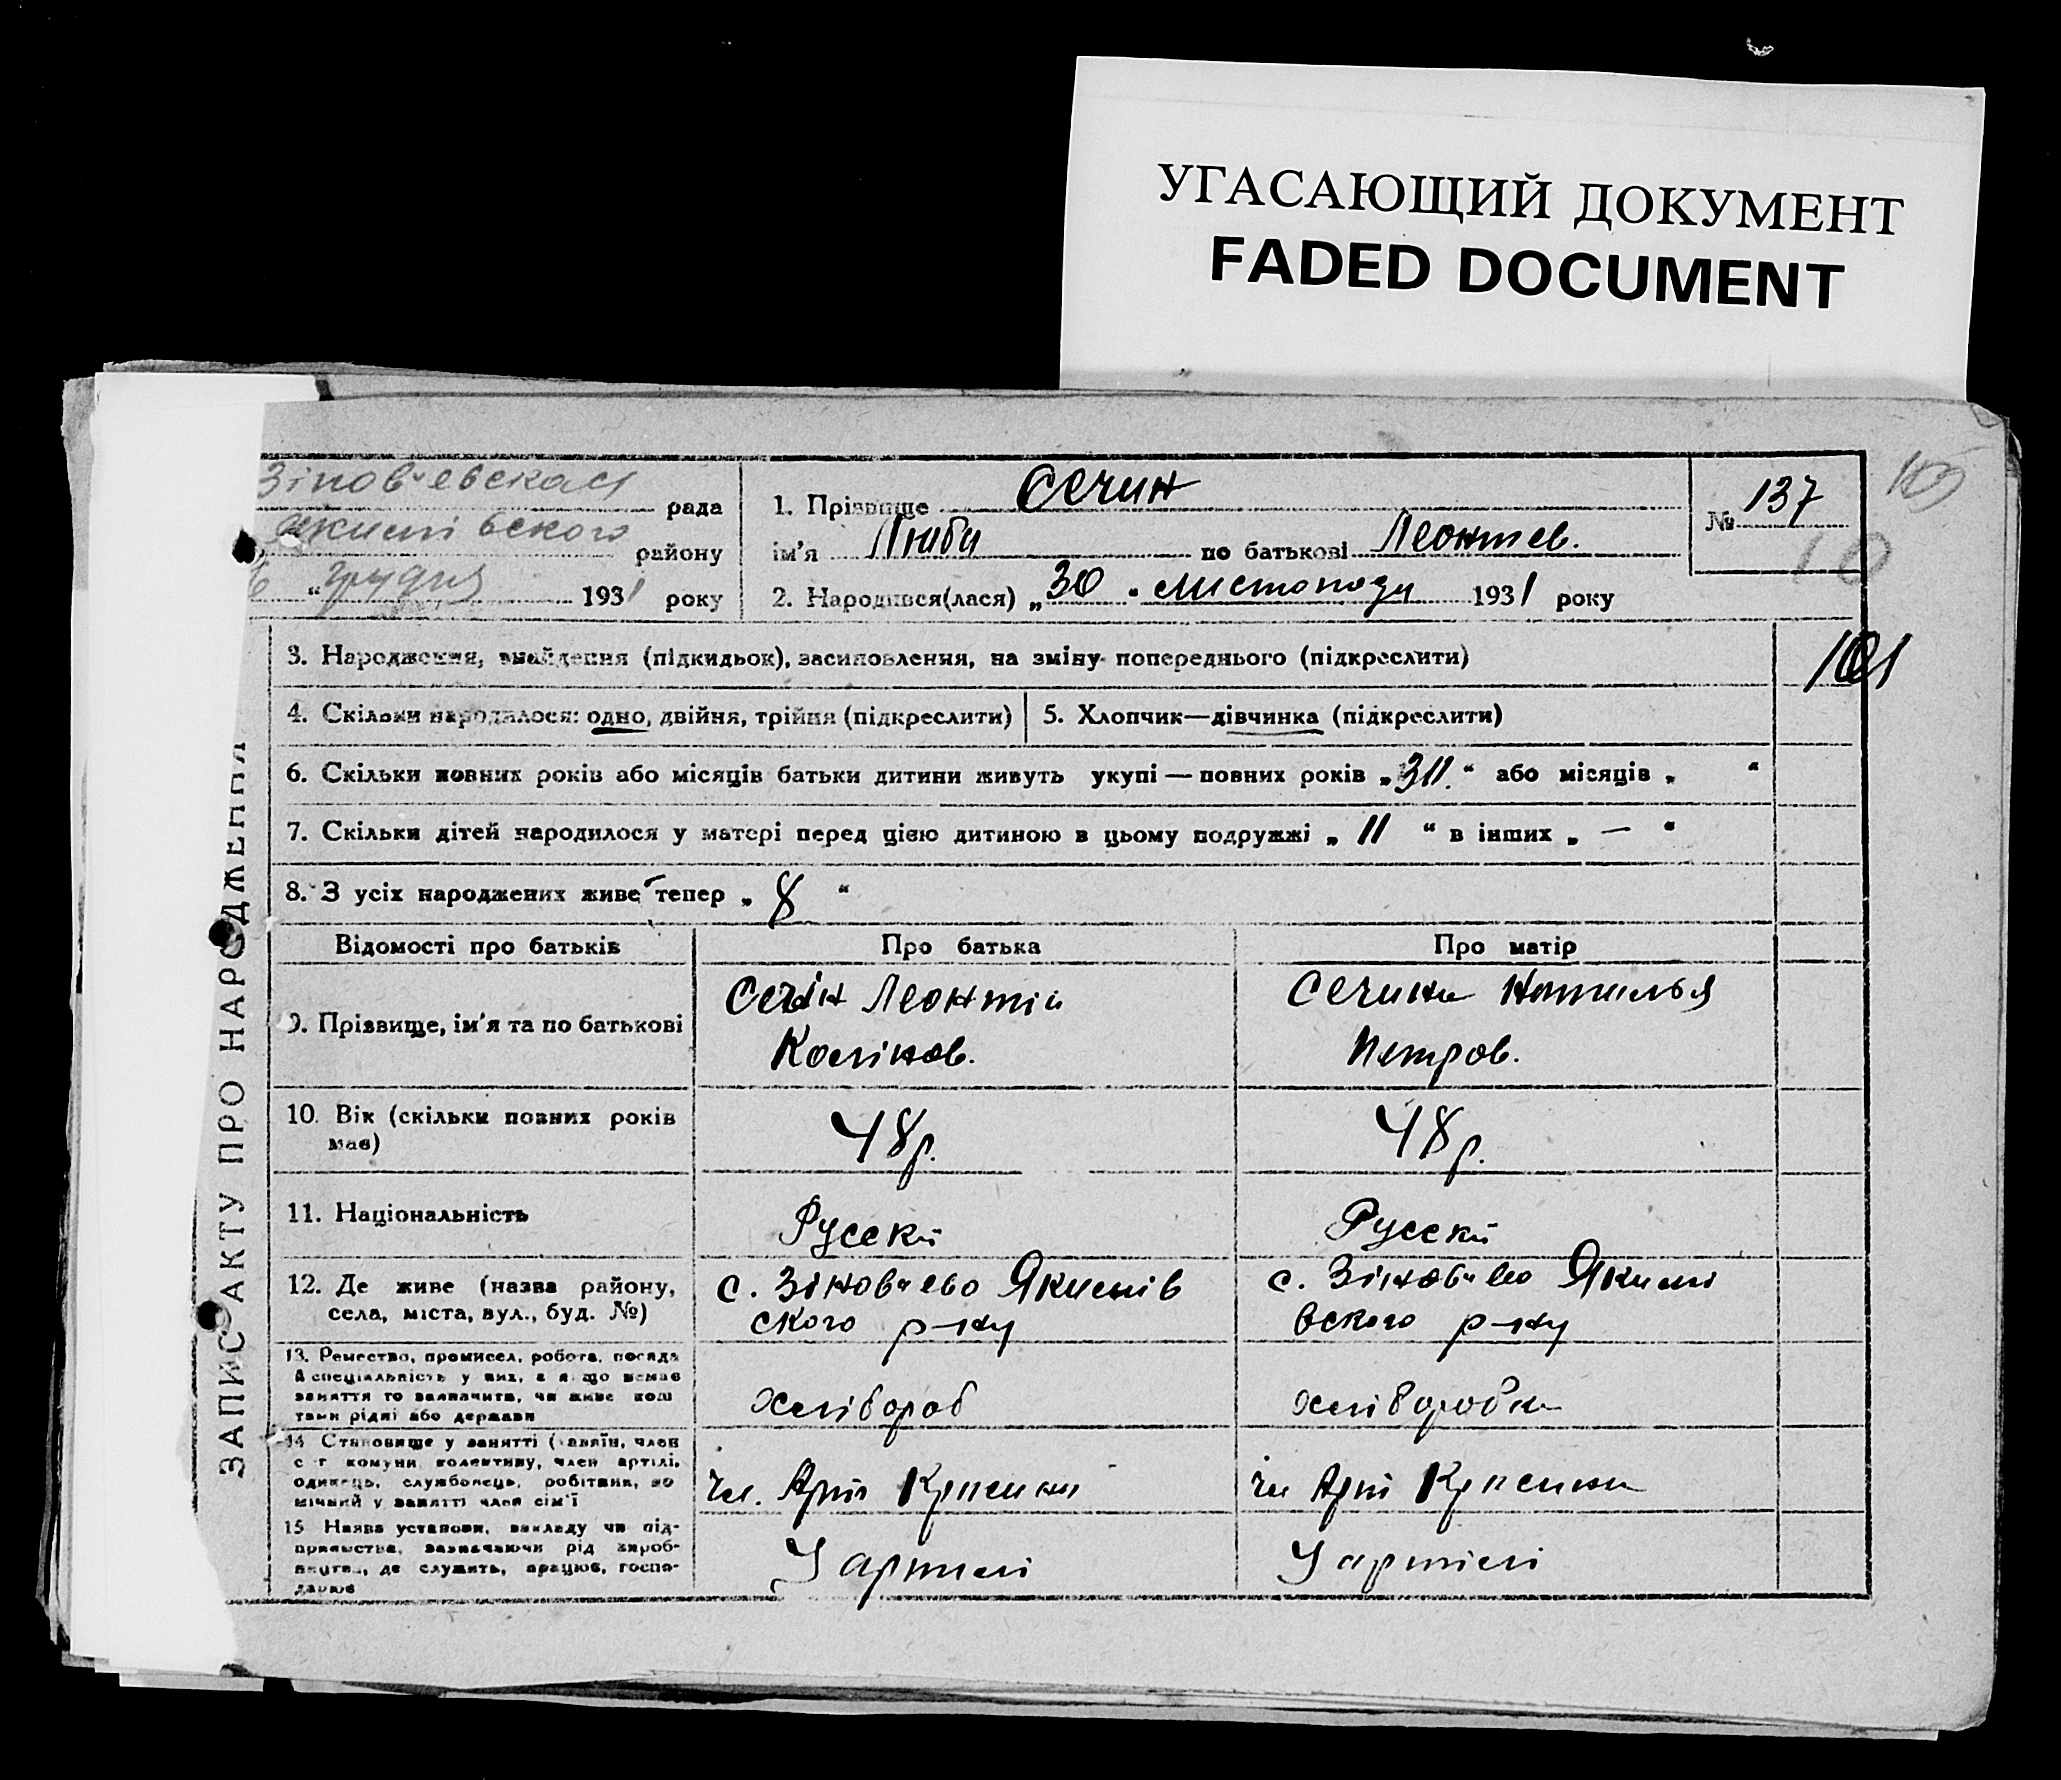 УГАСАЮЩИЙ ДОКУМЕНТ
FADED DOCUMENT
рада
району
грудня 1931 року
1. Прізвище Сечин
ім'я Люби по батькові Леонтев.
2. Народився(лася) „30" листопада 1931 року
№ 137
10
101
ЗАПИС АКТУ ПРО НАРОДЖЕННЯ
3. Народження, знайдення (підкидьок), засиновлення, на зміну попереднього (підкреслити)
4. Скільки народилося: одно, двійня, трійня (підкреслити)
5. Хлопчик—дівчинка (підкреслити)
6. Скільки повних років або місяців батьки дитини живуть укупі — повних років „ " або місяців „ "
7. Скільки дітей народилося у матері перед цією дитиною в цьому подружжі „ 11 " в інших „ — "
8. З усіх народжених живе тепер „ 8 "
Відомості про батьків
Про батька
Про матір
9. Прізвище, ім'я та по батькові
Сечін Леонтій
Сечина Наталья
Петров.
10. Вік (скільки повних років
має)
48 р.
48 р.
11. Національність
Русскі
Русскі
12. Де живе (назва району,
села, міста, вул., буд. №)
с. Зіновʼево Якимів
ского р-ну
с. Зіновʼево Якимі
вского р-ну
13. Ремество, промисел, робота, посада
й спеціяльність у них, а якщо немає
заняття то зазначити, чи живе кош
тами рідні або держави
хлібороб
хліборобка
14 Становище у занятті (хазяїн, член
с г комуни колективу, член артілі,
одинець, службовець, робітник, по
мічний у занятті член сім'ї
чл. Арті
чл Арті
15 Назва установи, закладу чи під-
приємства, зазначаючи рід вироб-
ництва, де служить, працює, госпо-
дарює
У артилі
У артілі